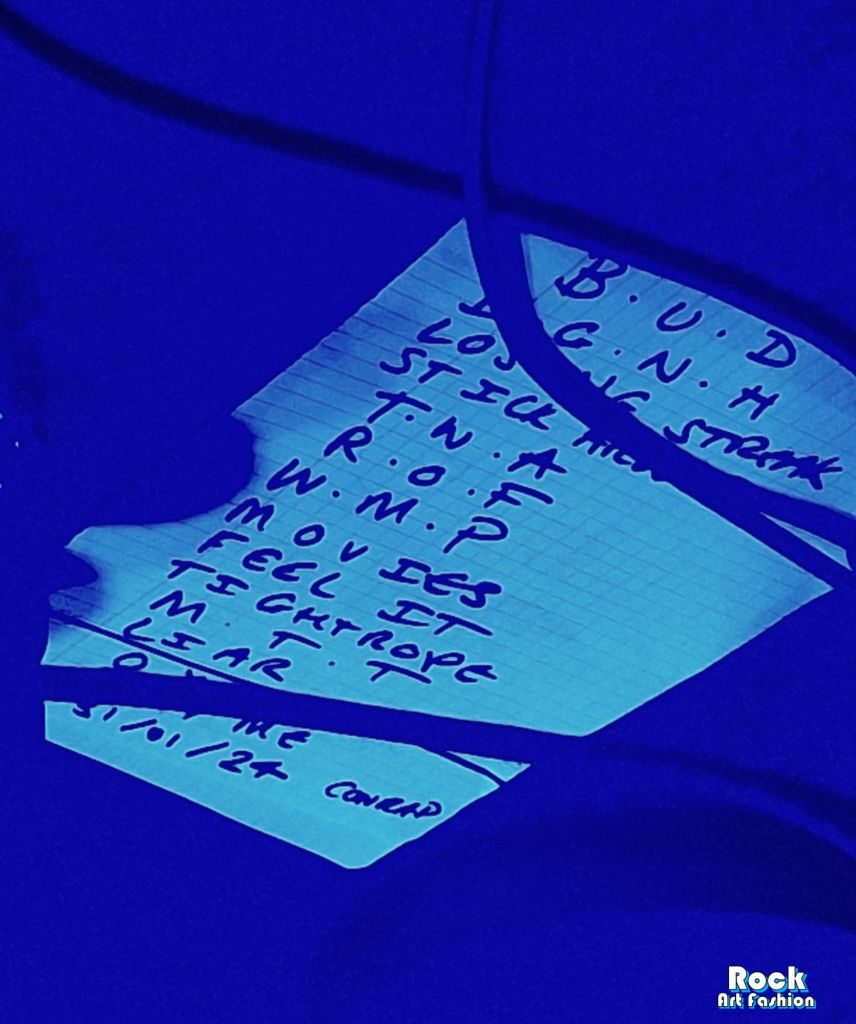 B.U.D
G.N.H
LOSING STREAK
STICK
T.N.A
R.O.F
W.M.P
MOVIES
FEEL IT
TIGHTROPE
M.T.T
LIAR
31/01/24 CONRAD
Rock
Art Fashion